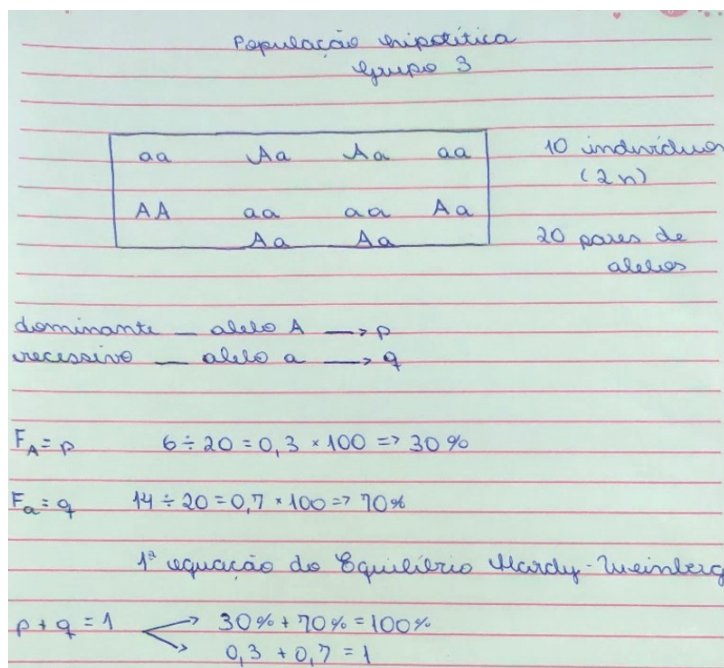 População hipotítica
Grupo 3
aa Aa Aa aa
10 indivíduos
(2n)
AA aa aa Aa
Aa Aa
20 pares de
alelos
dominante — alelo A —> p
recessivo — alelo a —> q
F_A = p 6 ÷ 20 = 0,3 × 100 => 30%
F_a = q 14 ÷ 20 = 0,7 × 100 => 70%
1ª equação do Equilíbrio Hardy-Weinberg
p + q = 1 30% + 70% = 100%
0,3 + 0,7 = 1